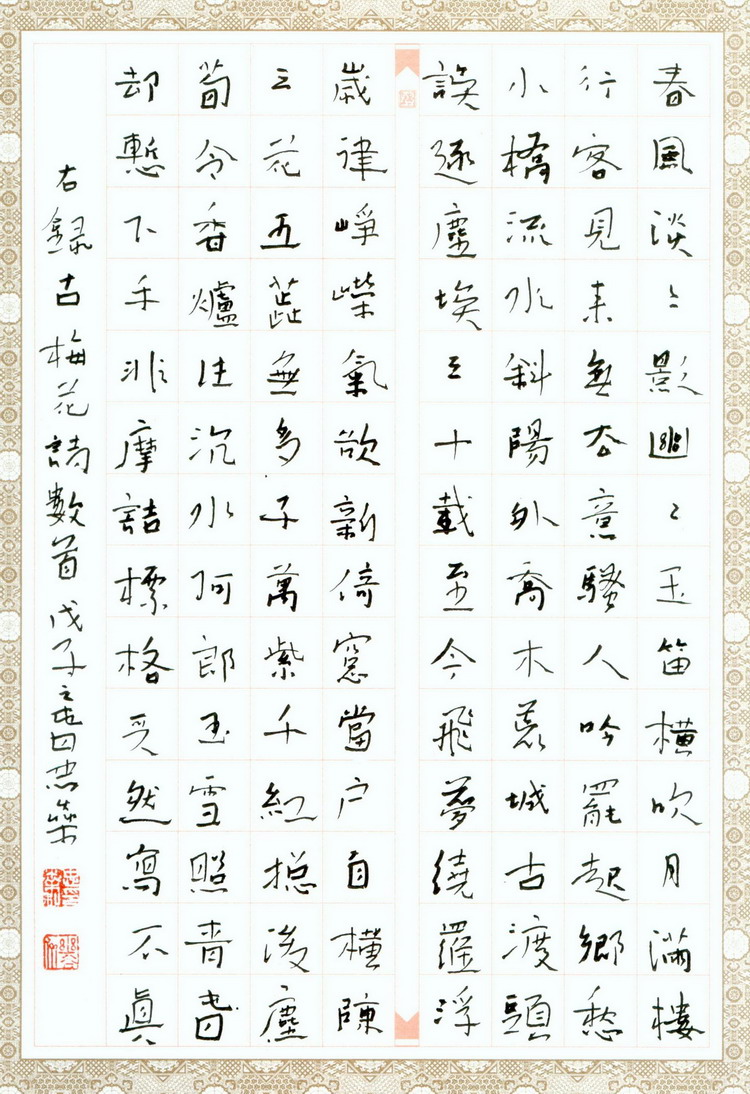 春風淡〻影幽〻玉笛橫吹月滿樓
行客見来無去意騷人吟罷起鄉愁
小橋流水斜陽外喬木荒城古渡頭
誤逐塵埃三十載至今飛夢繞羅浮
歲律崢嶸氣欲新倚窓當户自橫陳
三花五蕊無多子萬紫千紅摠後塵
荀令香爐住沉水阿郎玉雪照青旾
却慙下手非摩詰標格天然寫不真
右錄古梅花詩數首戊子之旾日忠榮